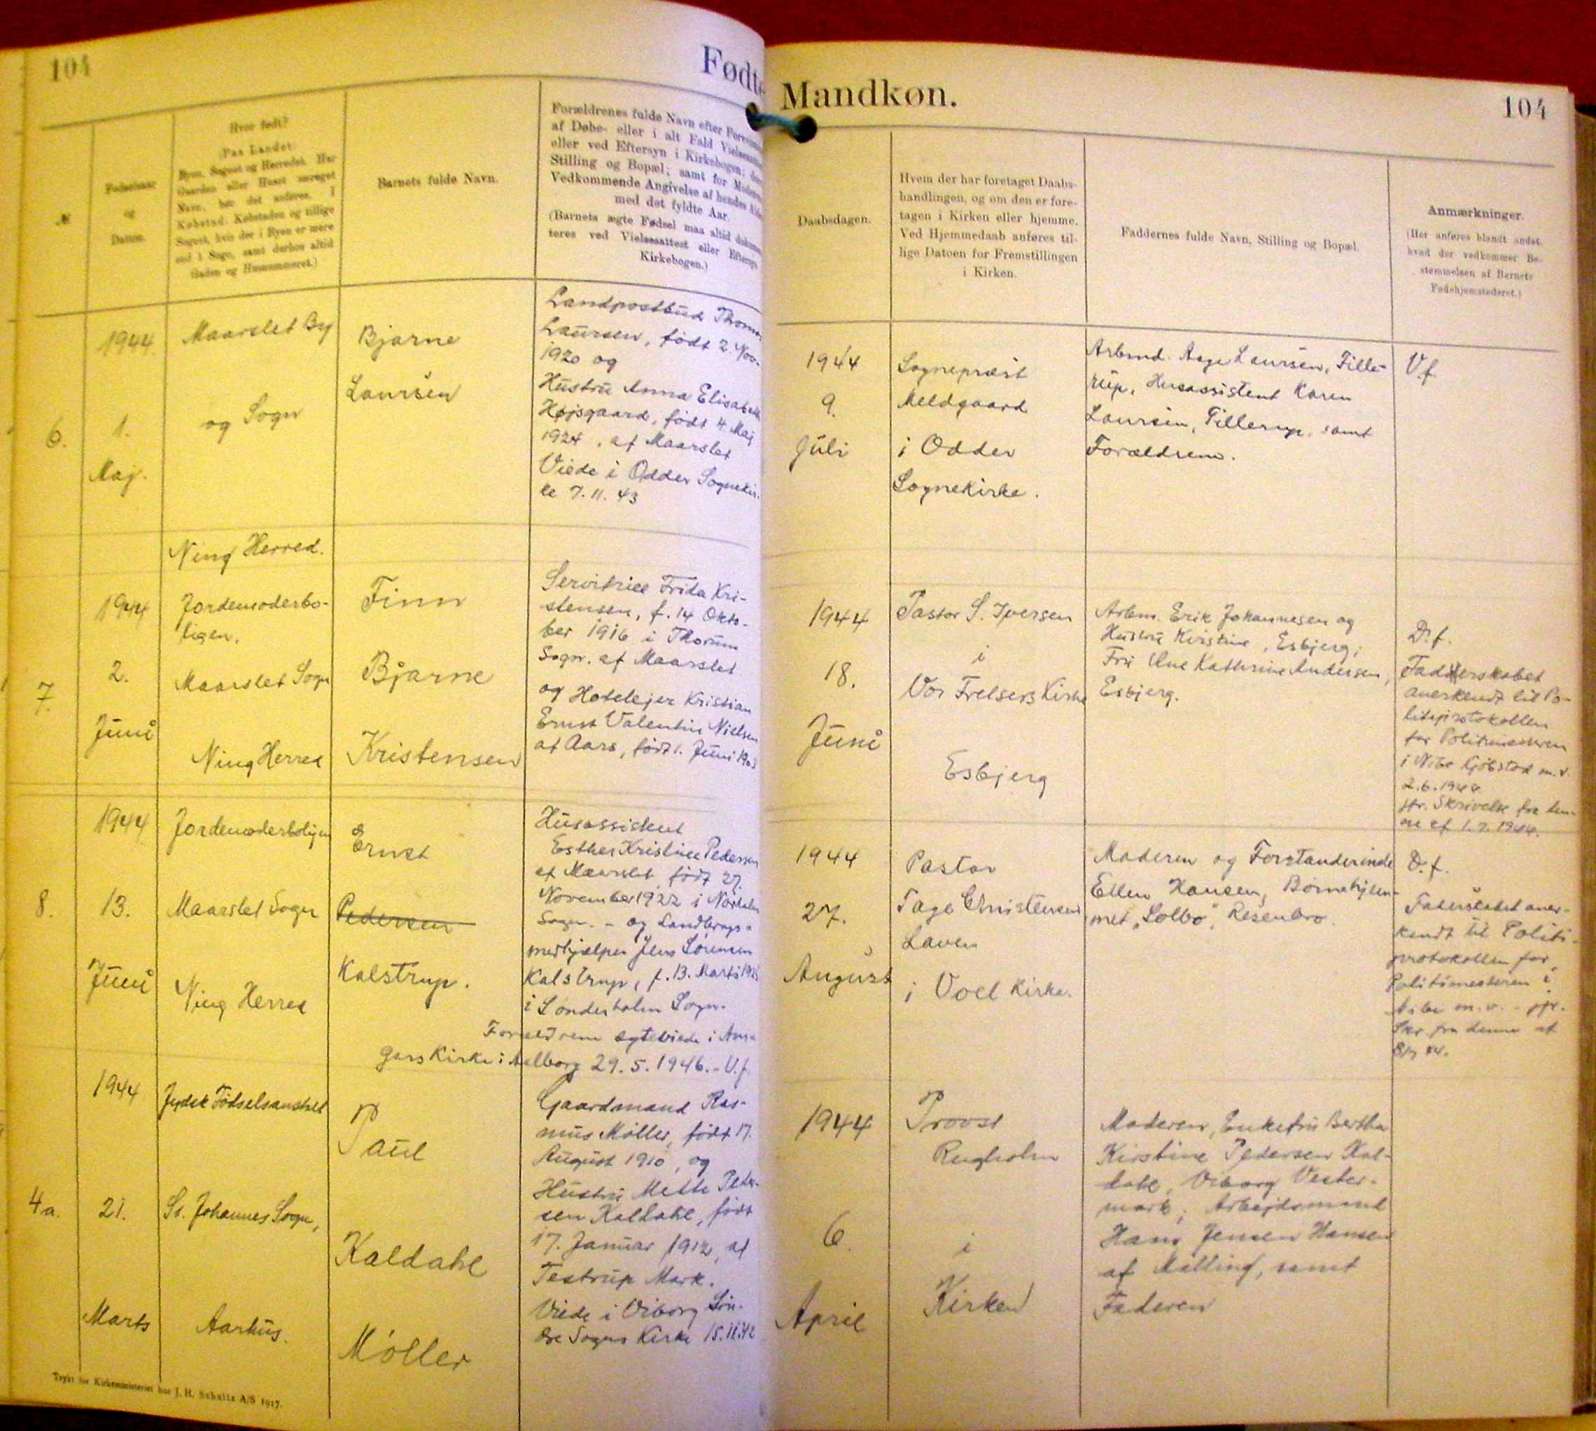 104
Fødte
Mandkøn.
104
№
Fødselsaar
og
Datum.
Hvor født?
(Paa Landet:
Byen, Sognet og Herredet. Har
Gaarden eller Huset særeget
Navn, bør det anføres. I
Købstad: Købstaden og tillige
Sognet, hvis der i Byen er mere
end 1 Sogn, samt derhos altid
Gaden og Husnummeret.)
Barnets fulde Navn.
Forældrenes fulde Navn efter
af Døbe- eller i alt Fald
eller ved Eftersyn i Kirkebogen;
Stilling og Bopæl; samt for
Vedkommende Angivelse af hendes
med det fyldte Aar.
(Barnets ægte Fødsel maa altid
teres ved Vielsesattest eller
Kirkebogen.)
Daabsdagen.
Hvem der har foretaget Daabs-
handlingen, og om den er fore-
tagen i Kirken eller hjemme.
Ved Hjemmedaab anføres til-
lige Datoen for Fremstillingen
i Kirken.
Faddernes fulde Navn, Stilling og Bopæl.
Anmærkninger.
(Her anføres blandt andet,
hvad der vedkommer Be-
stemmelsen af Barnets
Fødehjemstederet.)
6.
1944
1.
Maj.
Maarslet By
og Sogn
Ning Herred.
Bjarne
Laursen
Landpostbud
Laursen, født 2. Nov-
1920 og
Hustru Anna Elisabeth
Højsgaard, født 4 Maj
1924, af Maarslet
Viede i Odder Sognekir-
ke 7.11.43
1944
9.
Juli
Sognepræst
Meldgaard
i Odder
Sognekirke.
Arbmd. Aage Laursen, Tille-
rup, Husassistent Karen
Laursen, Tillerup, samt
Forældrene.
V.f.
7.
1944
2.
Juni
Jordemoderbo-
ligen.
Maarslet Sogn
Ning Herred
Finn
Bjarne
Kristensen
Servitrice Frida Kri-
stensen, f. 14 Okto-
ber 1916 i Thorum
Sogn. af Maarslet
og Hotelejer Kristian
Ernst Valentin Nielsen
af Aars, født 1. Juni
1944
18.
Juni
Pastor S. Iversen
i
Vor Frelsers Kirke
Esbjerg
Arbm. Erik Johannesen og
Hustru Kirstine, Esbjerg;
Fru Kathrine Andersen,
Esbjerg.
D.f.
Faderskabet
anerkendt til Po-
litiprotokollen
for Politimesteren
i Nibe Kjøbstad m.v.
2.6.1944
jfr. Skrivelse fra den-
ne af 1.7.1944.
8.
1944
13.
Juni
Jordemoderboligen
Maarslet Sogn
Ning Herred
Ernst
Pedersen
Kalstrup.
Husassistent
Esther Kristine Pedersen
af Maarslet, født 27
November 1922 i Nørholm
Sogn. - og Landbrugs-
medhjælper Jens Sørensen
Kalstrup, f. 13. Marts
i Sønderholm Sogn.
Forældrene ægteviede i Ans-
gars Kirke i Aalborg 29.5.1946. - V.f.
1944
27.
August
Pastor
Tage Christensen
Laven
i Voel Kirke.
Moderen og Forstanderinde
Ellen Hansen, Børnehjem-
met "Solbo", Resenbro.
D.f.
Faderskabet aner-
kendt til Politi-
protokollen for
Politimesteren i
Nibe m.v. - jfr.
Skr. fra denne af
4a.
1944
21.
Marts
Jydsk Fødselsanstalt
St. Johannes Sogn,
Aarhus.
Paul
Kaldahl
Møller
Gaardmand Ras-
mus Møller, født 17.
August 1910, og
Hustru Mette Peder-
sen Kaldahl, født
17. Januar 1912, af
Testrup Mark.
Viede i Viborg Søn-
dre Sogns Kirke 15.11.42
1944
6.
April
Provst
Rugholm
i
Kirken
Moderen, Enkefru Bertha
Kirstine Pedersen Kal-
dahl, Viborg Vester-
mark; Arbejdsmand
Hans Jensen Hansen
af Malling, samt
Faderen
Trykt for Kirkeministeriet hos J. H. Schultz A/S 1917.